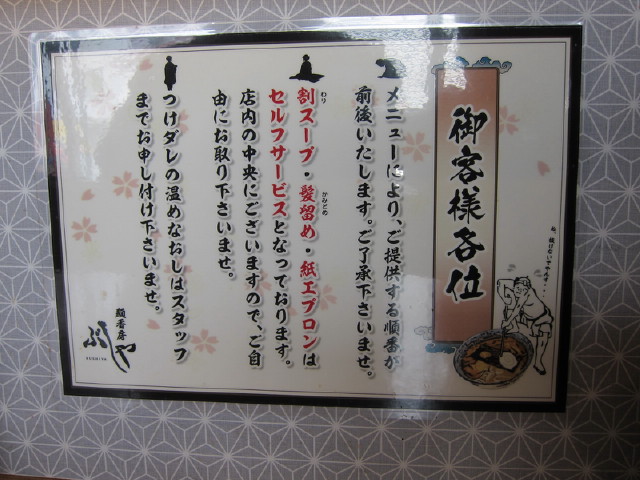 御客様各位
メニューにより、ご提供する順番が
前後いたします。ご了承下さいませ。
わり
かみどめ
割スープ・髪留め・紙エプロンは
セルフサービスとなっております。
店内の中央にございますので、ご自
由にお取り下さいませ。
つけダレの温めなおしはスタッフ
までお申し付け下さいませ。
麺香房
ぶしや
BUSHIYA